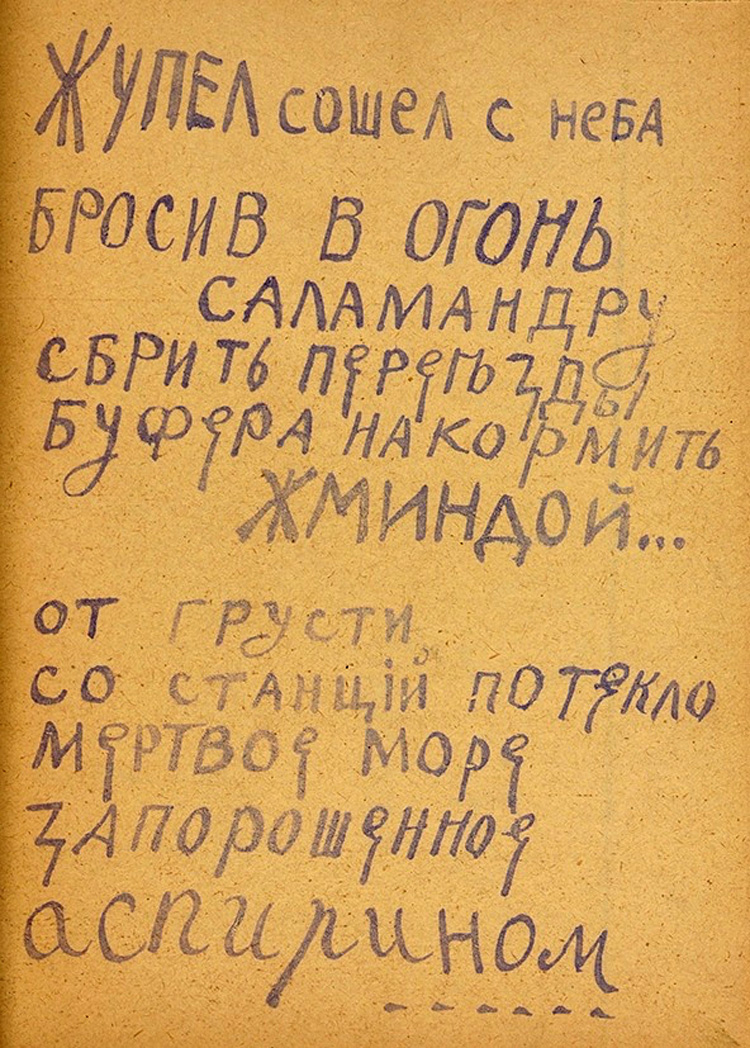 ЖУПЕЛ сошел с неБА
БРОСИВ В ОГОНЬ
САЛАМАНДРУ
СБРИТЬ ПЕРЕѢЗДЫ
БУФЕРА НАКОРМИТЬ
ЖМИНДОЙ...
ОТ ГРУСТИ
СО СТАНЦІЙ ПОТЕКЛО
МЕРТВОЕ МОРЕ
ЗАПОРОШЕННОЕ
аспирином
------